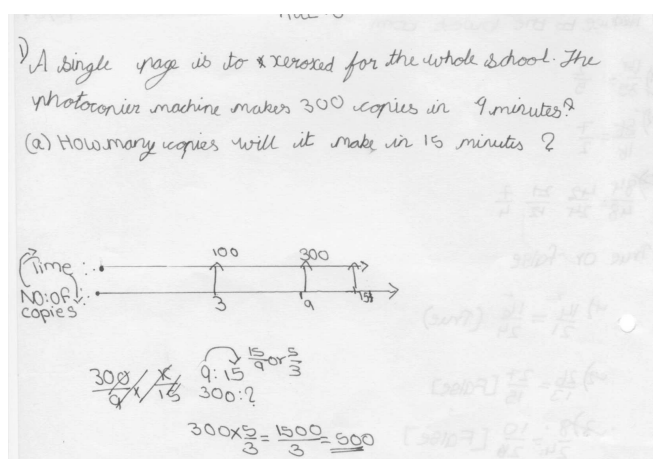 1) A single page is to xeroxed for the whole school. The
photocopier machine makes 300 copies in 9 minutes?
(a) How many copies will it make in 15 minutes ?
100 300
Time :
NO: OF : 3 9 15
copies
9:15 15/9 or 5/3
300:?
300/9 x/15
300x5/3 = 1500/3 = 500